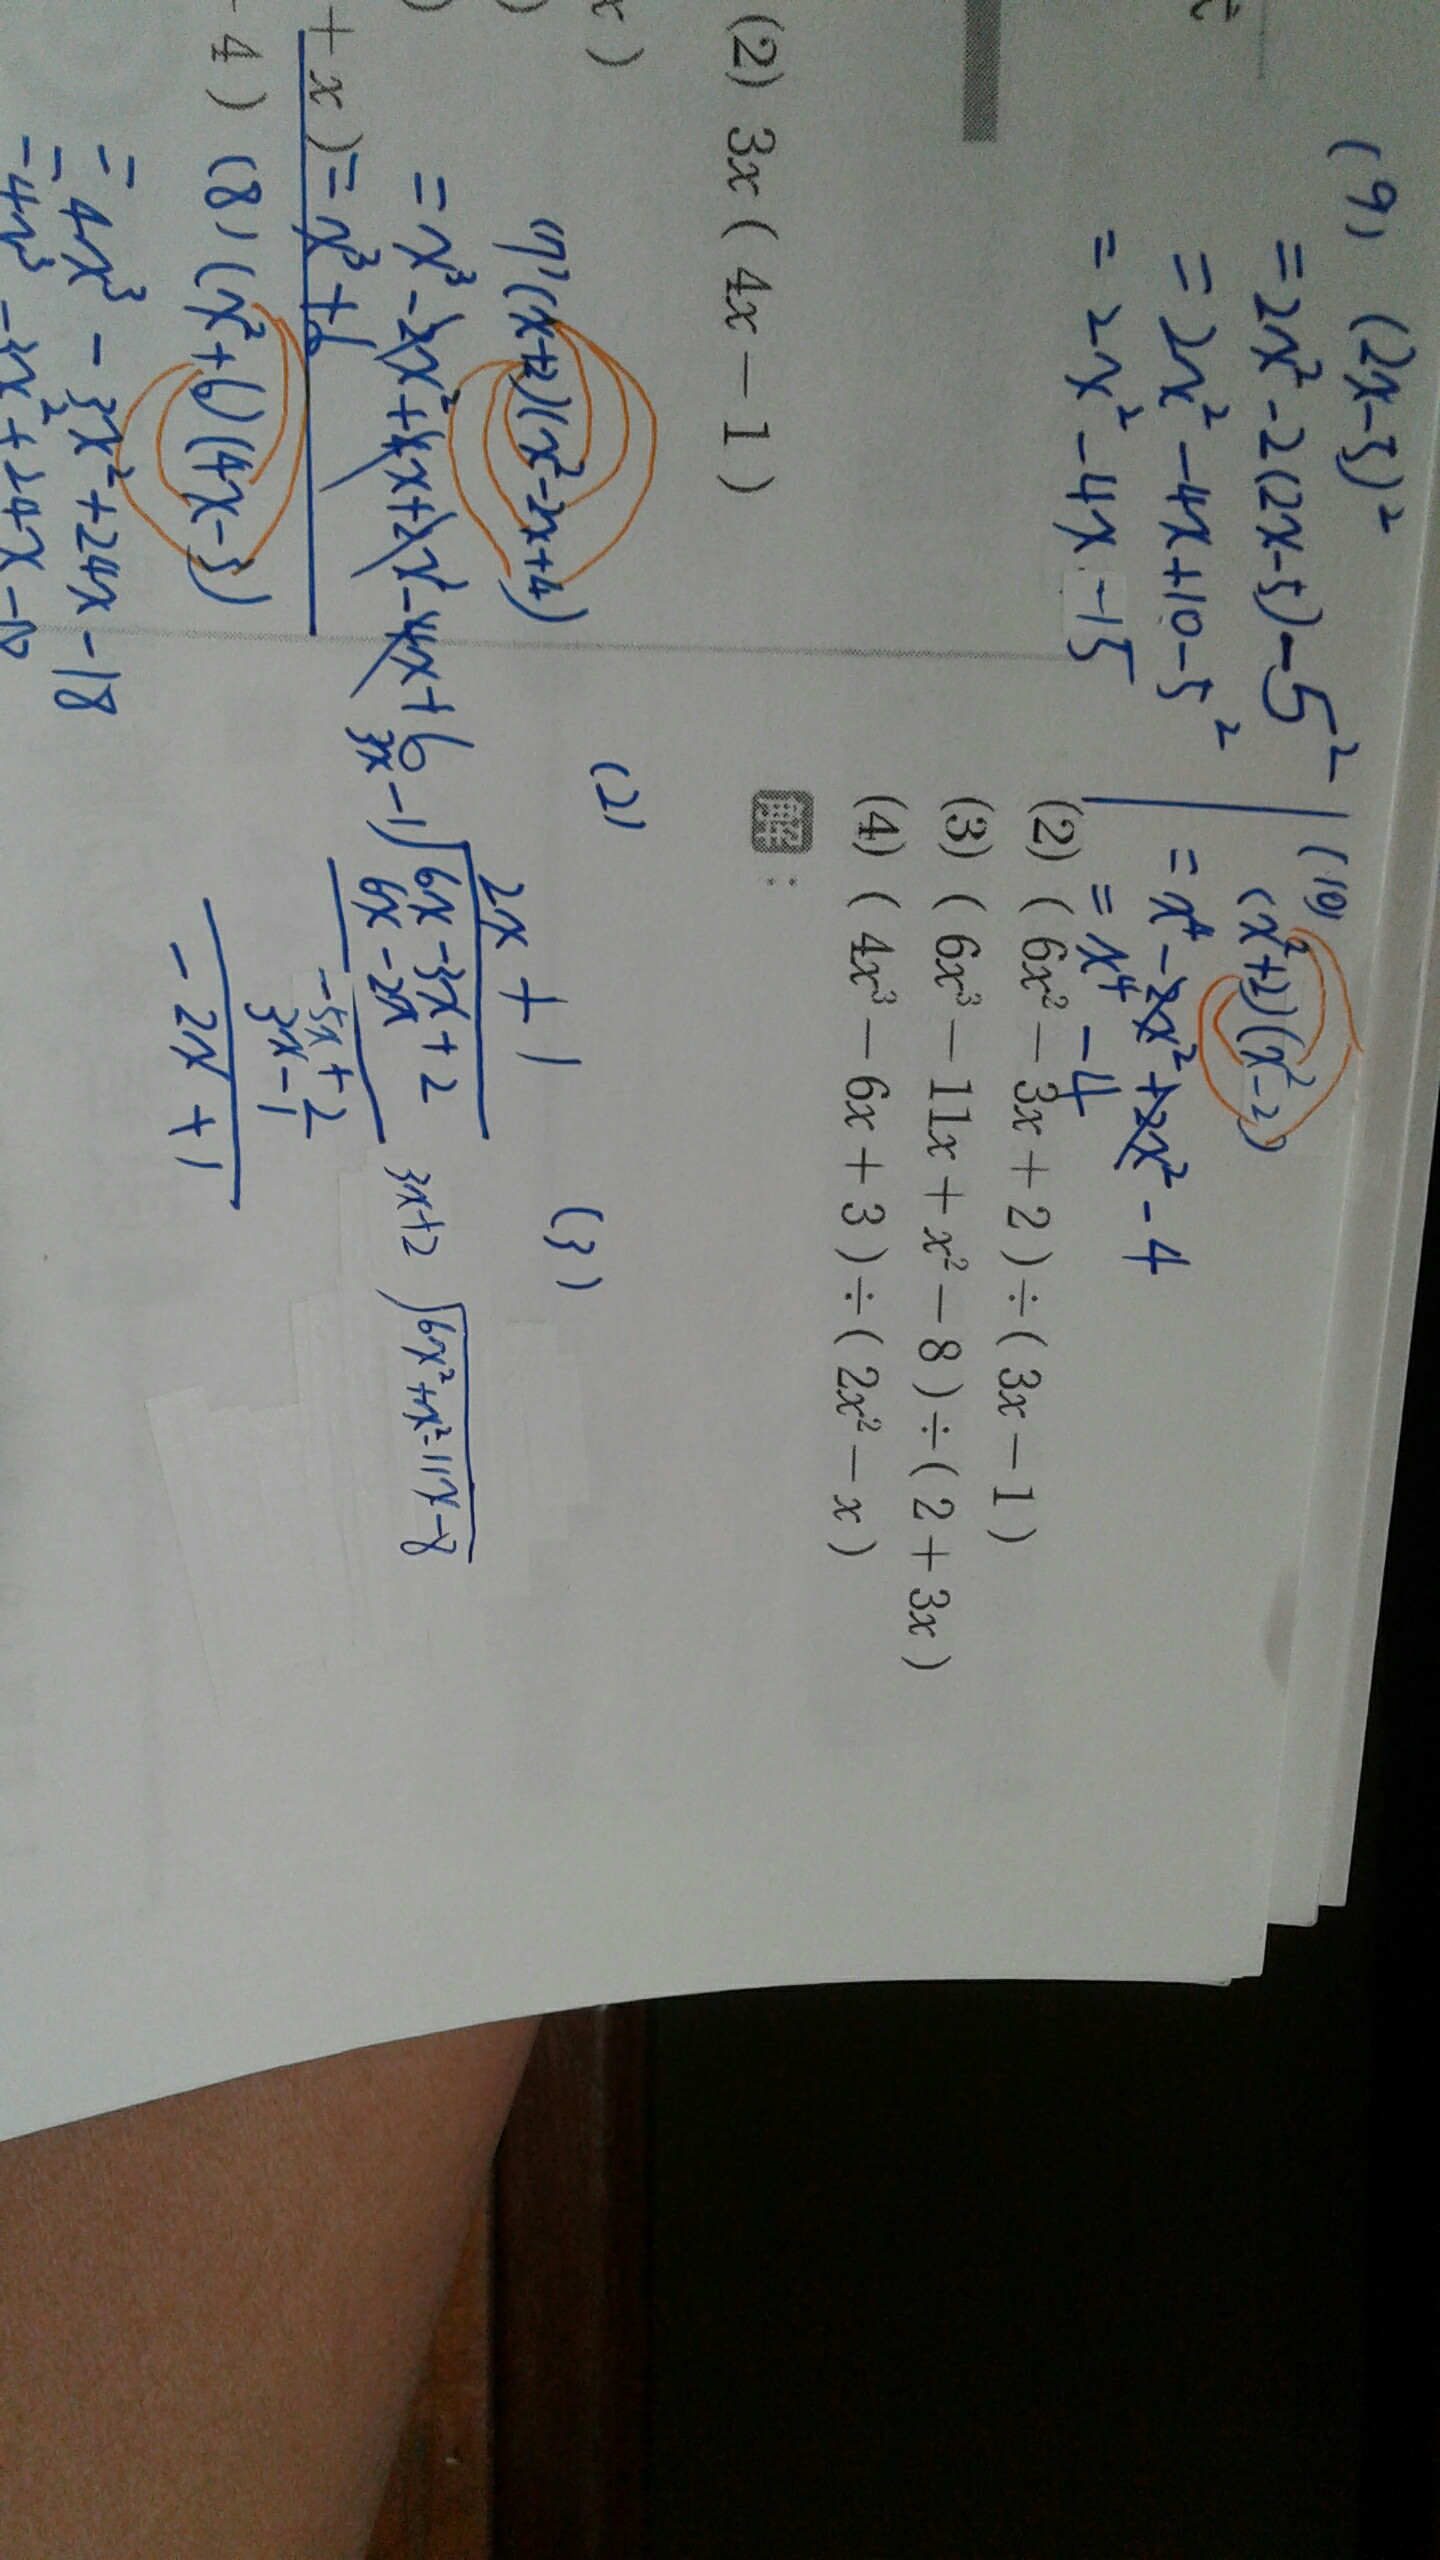 (9) (2x-5)²
= 2x² - 2(2x-5) - 5²
= 2x² - 4x + 10 - 5²
= 2x² - 4x - 15
(10)
(x²+2)(x²-2)
= x⁴ - 2x² + 2x² - 4
= x⁴ - 4
(2) 3x ( 4x − 1 )
x )
(7) (x+2)(x²-2x+4)
= x³ - 2x² + 4x + 2x² - 4x + 6
+ x ) = x³ + 6
- 4 ) (8) (x²+6)(4x-3)
= 4x³ - 3x² + 24x - 18
= 4x³ - 3x² + 24x - 18
(2) ( 6x² − 3x + 2 ) ÷ ( 3x − 1 )
(3) ( 6x³ − 11x + x² − 8 ) ÷ ( 2 + 3x )
(4) ( 4x³ − 6x + 3 ) ÷ ( 2x² − x )
解 :
(2)
2x + 1
3x - 1 ) 6x - 3x + 2
6x - 2x
- 5x + 2
3x - 1
- 2x + 1
(3)
3x+2 ) 6x² + x² - 11x - 8